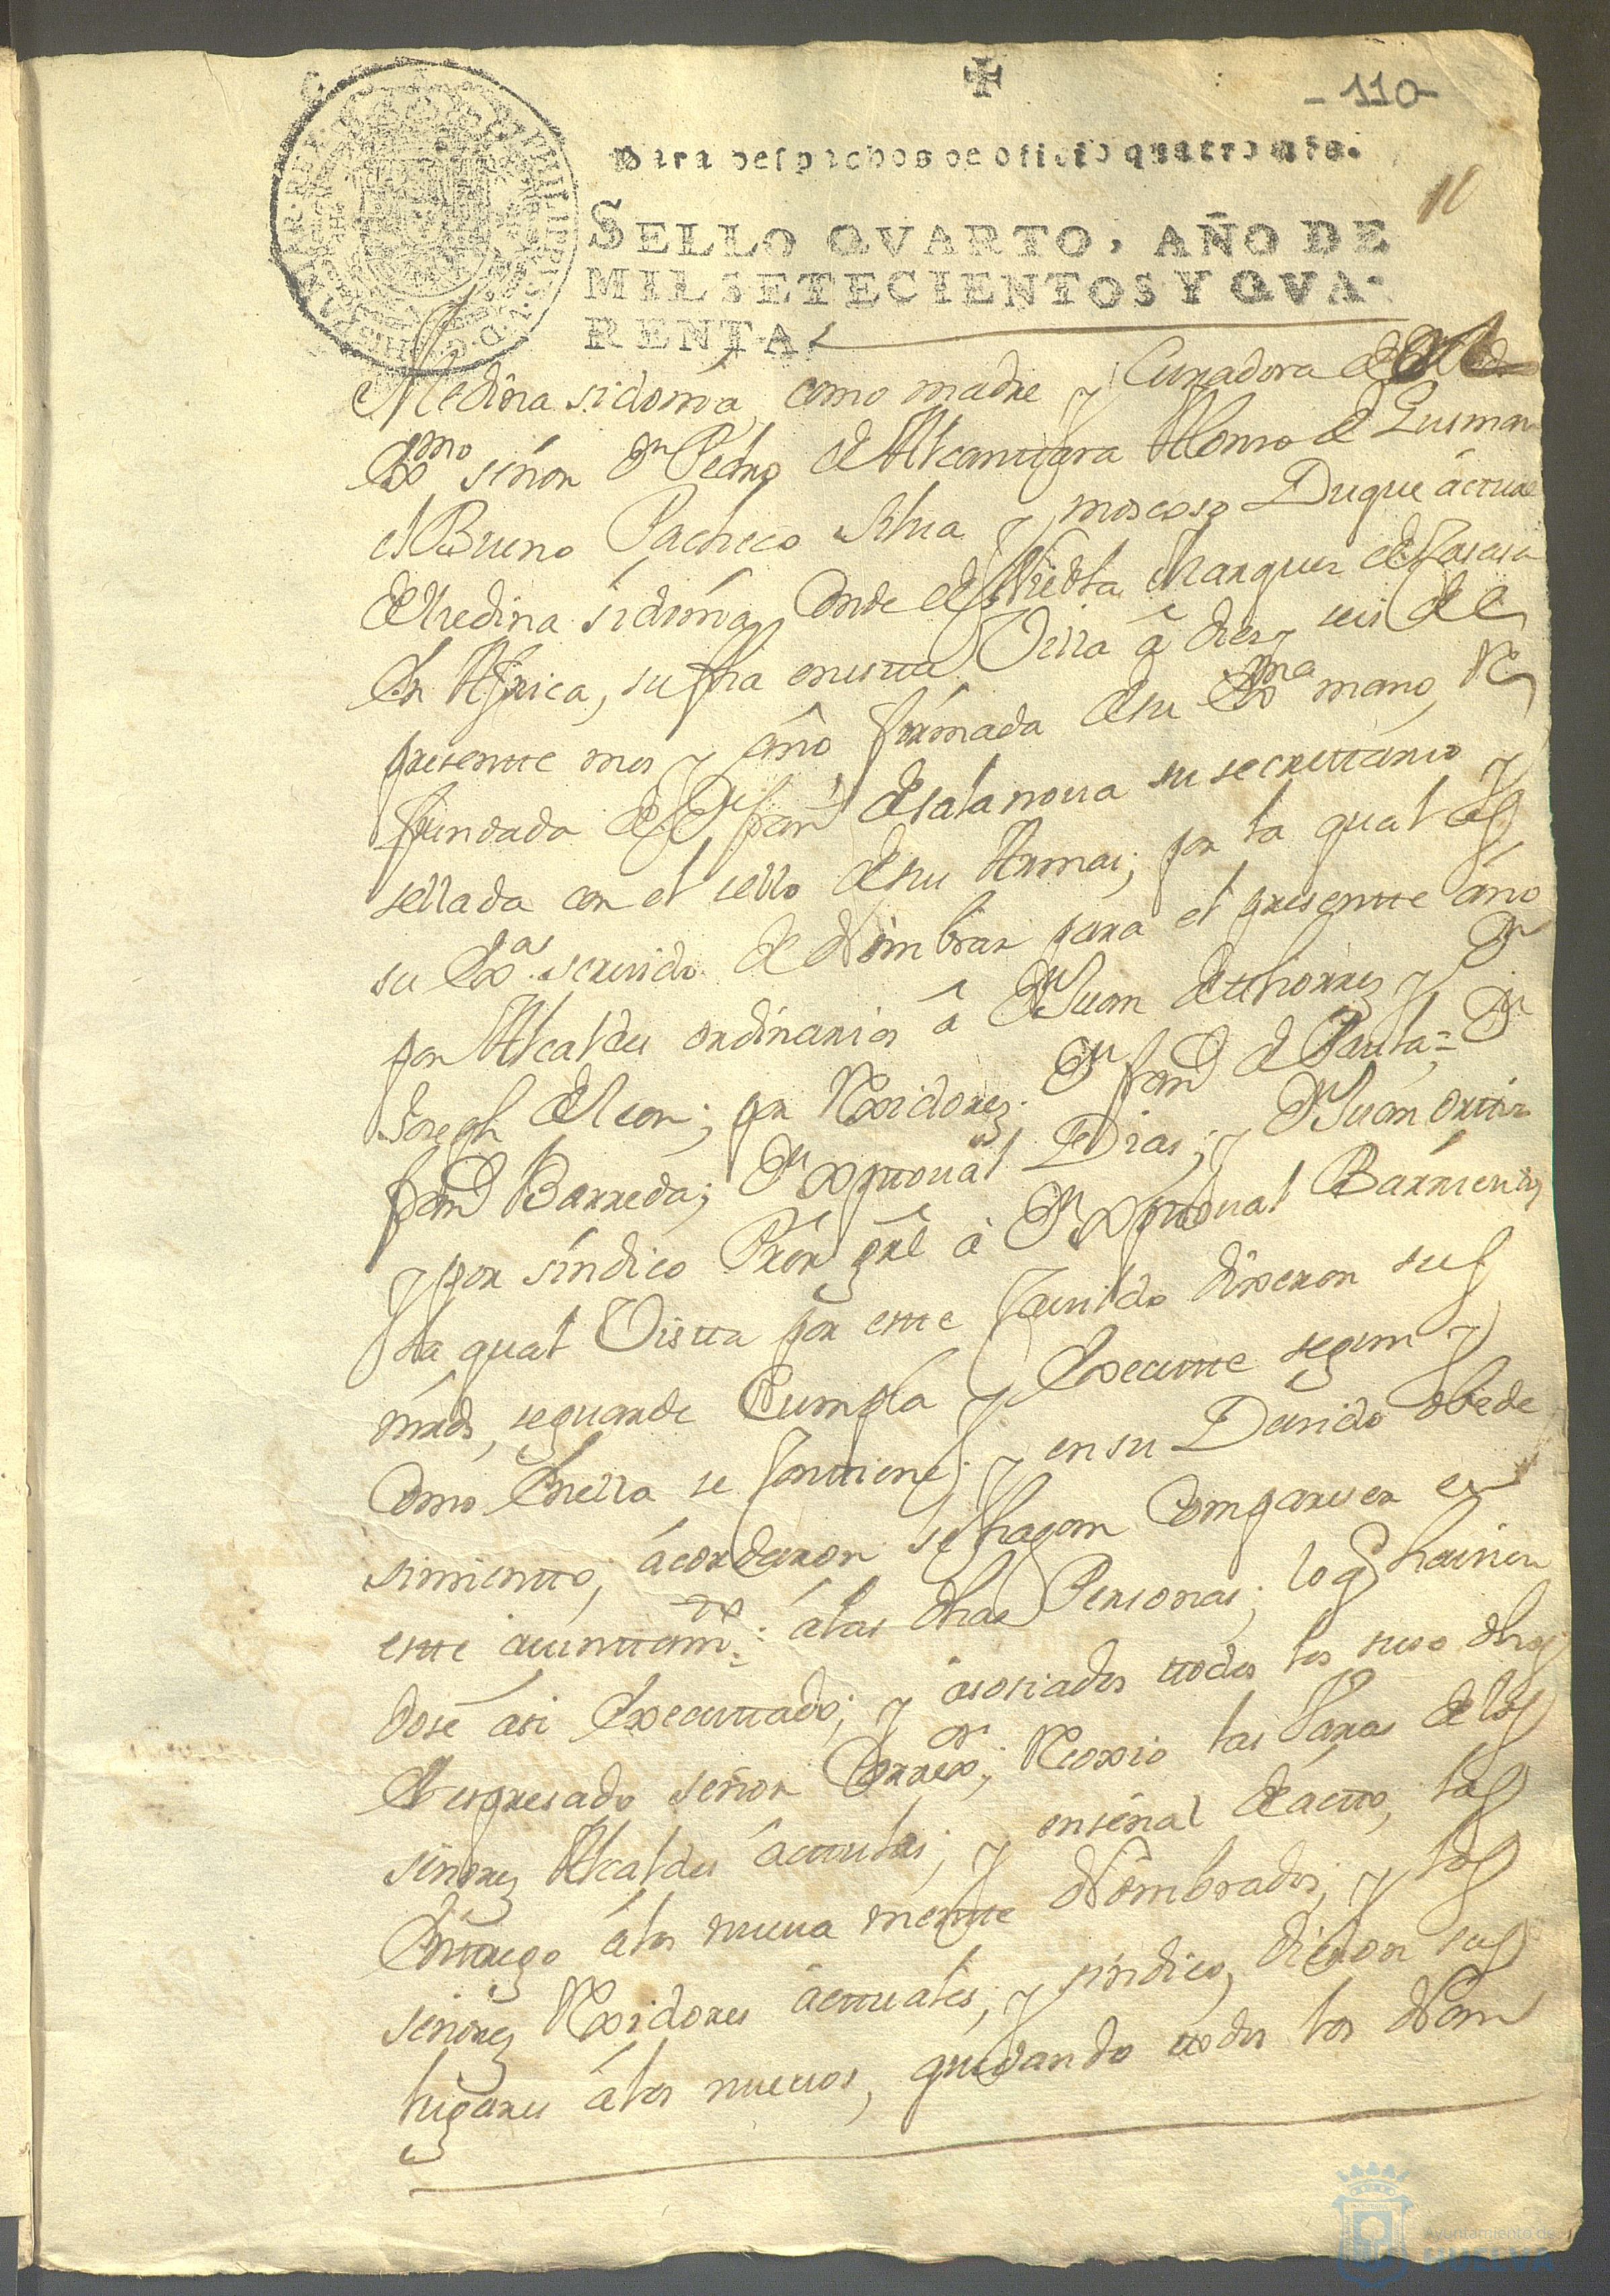 - 110 -
Para despachos de oficio quatro mrs.
10
SELLO QVARTO, AÑO DE
MIL SETECIENTOS Y QVA-
RENTA.
Medina sidonia, como madre y Curadora del
Exmo señor Dn Pedro de Alcantara Alonso de Gusman
el Bueno Pacheco silua y moscoso Duque áctual
de Medina sidonia Conde de Niebla Marques de Casasa
En Africa, su fha en estta Villa â dies y seis de el
presentte mes y año firmada de su Exma mano, Re
frendada de Dn Franco de salanoua su secrettario y
sellada con el sello de sus Armas; por la qual es
su Exa seruido de Nombrar para el presentte año
por Alcaldes ordinarios â Dn Juan de thorres y Dn
Joseph de Leon; por Rexidores Dn Franco de Paula = Dn
Franco Barreda; Dn Xptoual Dias; y Dn Juan orttis
y por sindico Prôr grâl â Dn Xptoual Barrientos
La qual Vistta por estte Cauildo dixeron sus
mrds, se guarde Cumpla y Execute segun y
Como En ella se Conttiene; y en su Deuido obede
simientto, ácordaron se hagan Compareser en
estte aiunttamto: álas dhas Personas; lo q hauien
dose ási Executtado; y ásosiados ttodos los suso dhos
El espresado señor Correxor; Recoxio las Varas de los
señores Alcaldes áctuales; y en señal de ácto, las
Enttrego álos nueua mentte Nombrados; y los
señores Rexidores ácttuales, y sindico, dieron sus
lugares álos nueuos, quedando ttodos los Nom
Ayuntamiento de
HUELVA